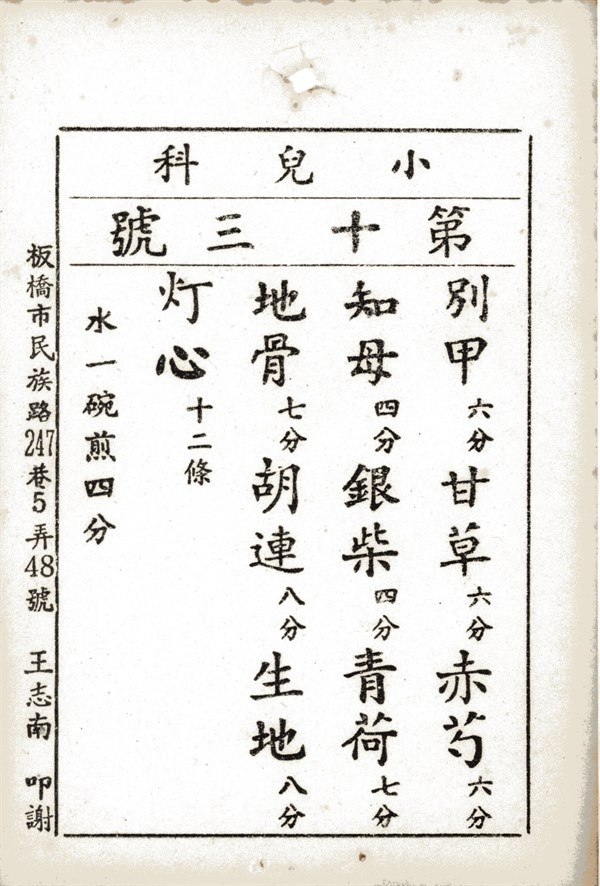 小兒科
第十三號
別甲六分 甘草六分 赤芍六分
知母四分 銀柴四分 青荷七分
地骨七分 胡連八分 生地八分
灯心十二條
水一碗煎四分
板橋市民族路247巷5弄48號 王志南 叩謝